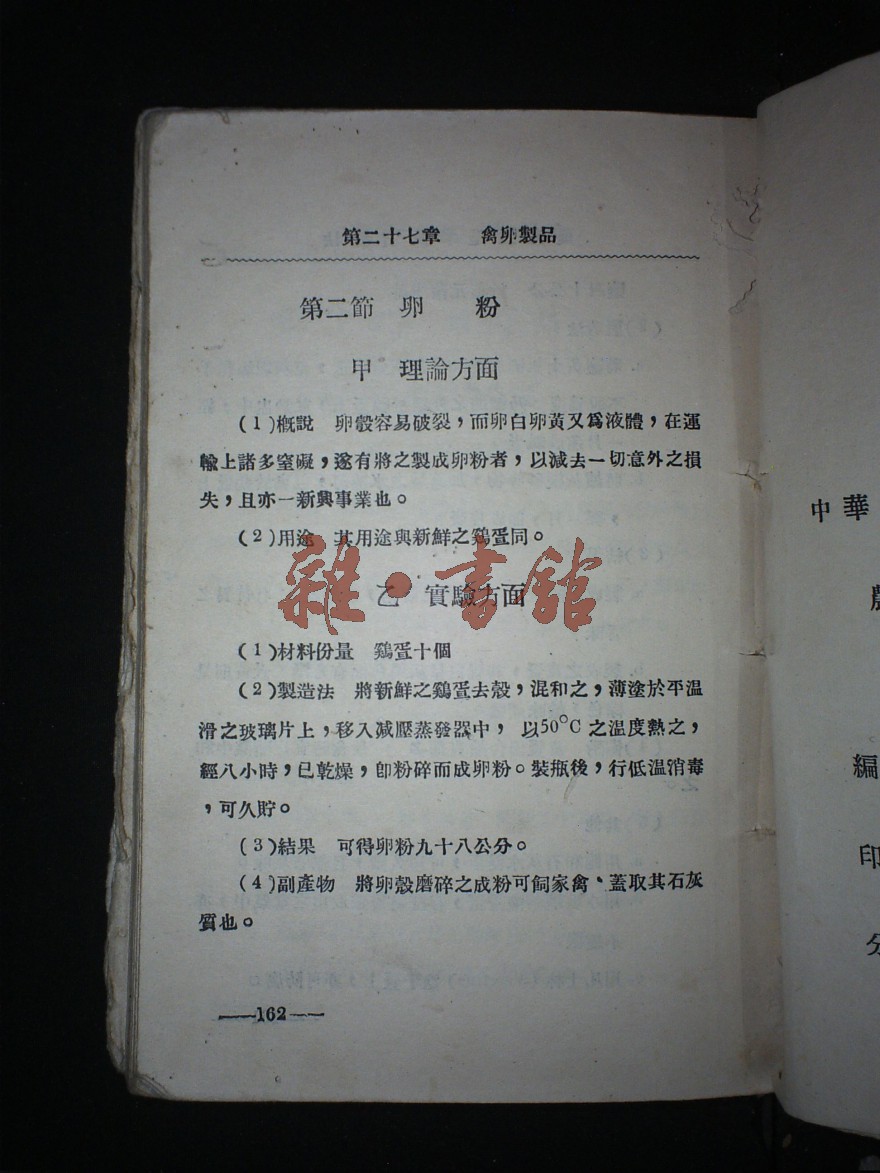 第二十七章　禽卵製品
第二節　卵　粉
甲　理論方面
(1)概說　卵殼容易破裂，而卵白卵黃又爲液體，在運
輸上諸多窒礙，遂有將之製成卵粉者，以減去一切意外之損
失，且亦一新興事業也。
(2)用途　其用途與新鮮之鷄蛋同。
雜·書館
乙　實驗方面
(1)材料份量　鷄蛋十個
(2)製造法　將新鮮之鷄蛋去殼，混和之，薄塗於平温
滑之玻璃片上，移入减壓蒸發器中，以50°C 之温度熱之，
經八小時，已乾燥，卽粉碎而成卵粉。裝瓶後，行低温消毒
，可久貯。
(3)結果　可得卵粉九十八公分。
(4)副產物　將卵殼磨碎之成粉可飼家禽、蓋取其石灰
質也。
——162——
中華
編
印